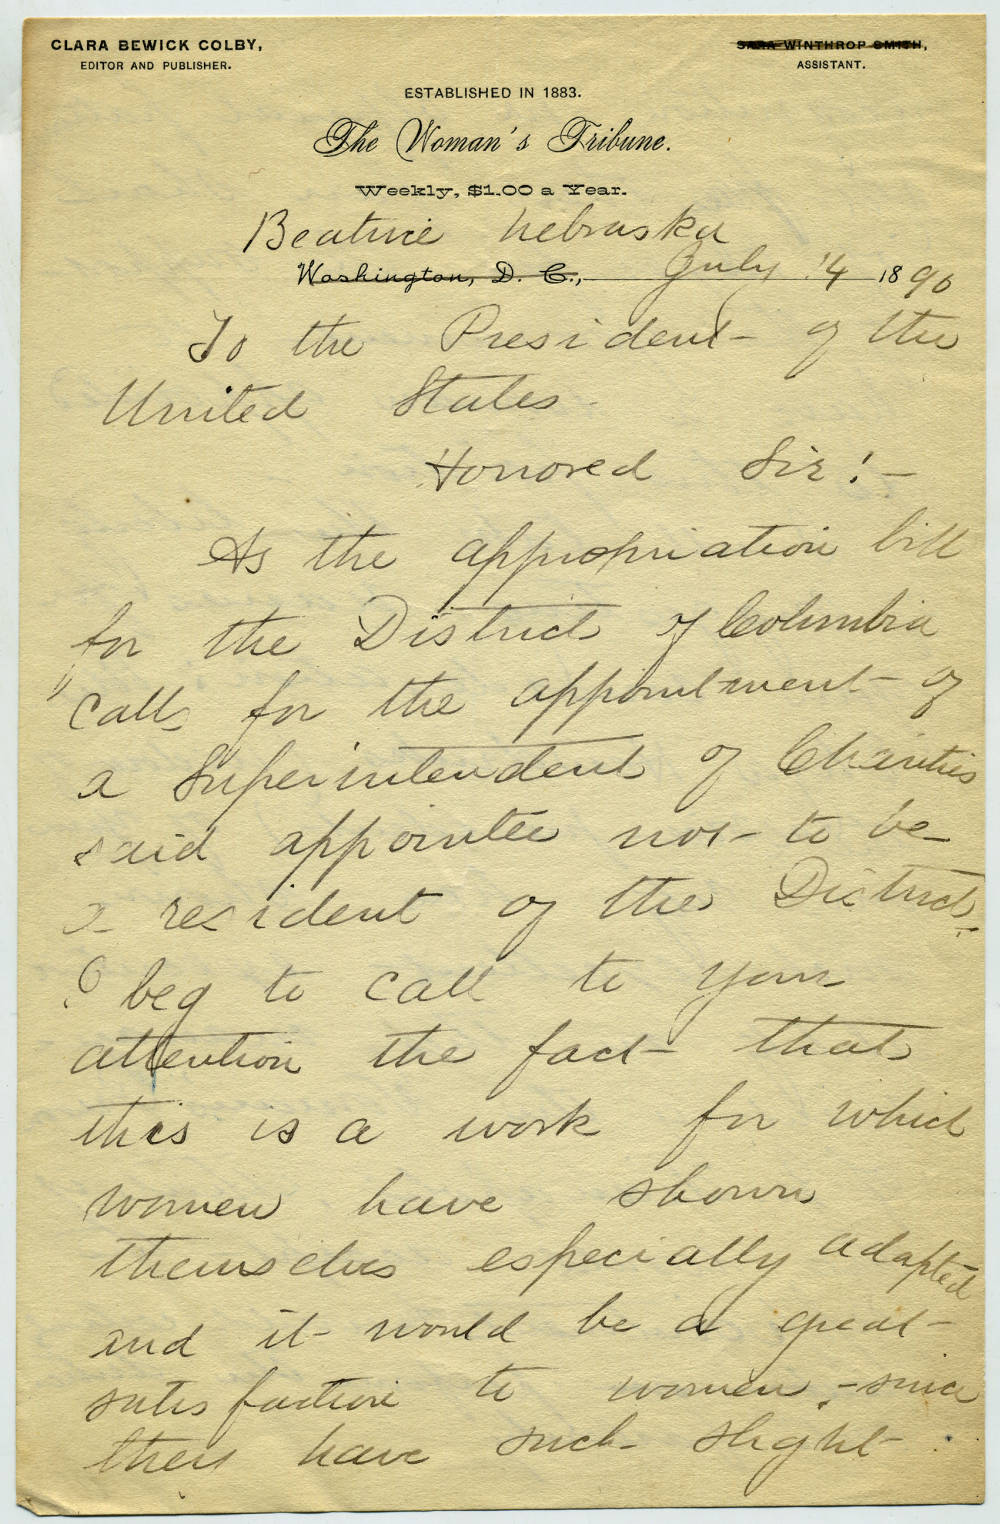 CLARA BEWICK COLBY,
EDITOR AND PUBLISHER.
SARA WINTHROP SMITH,
ASSISTANT.
ESTABLISHED IN 1883.
The Woman's Tribune.
Weekly, $1.00 a Year.
Beatrice Nebraska
Washington, D. C., July 14 1890
To the President of the
United States
Honored Sir! -
As the appropriation bill
for the District of Columbia
calls for the appointment of
a Superintendent of Charities
said appointee not to be
a resident of the District,
I beg to call to your
attention the fact that
this is a work for which
women have shown
themselves especially adapted
and it would be a great
satisfaction to women, - since
they have such slight